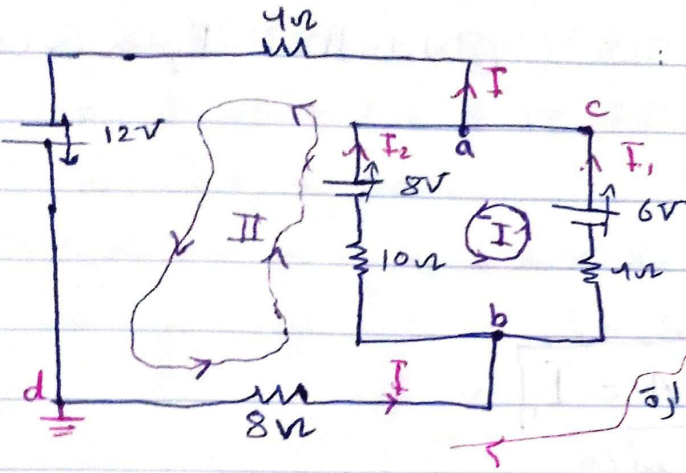 4Ω
I
c
12V
a
I₂
I₁
8V
6V
II
I
10Ω
4Ω
b
d
I
8Ω